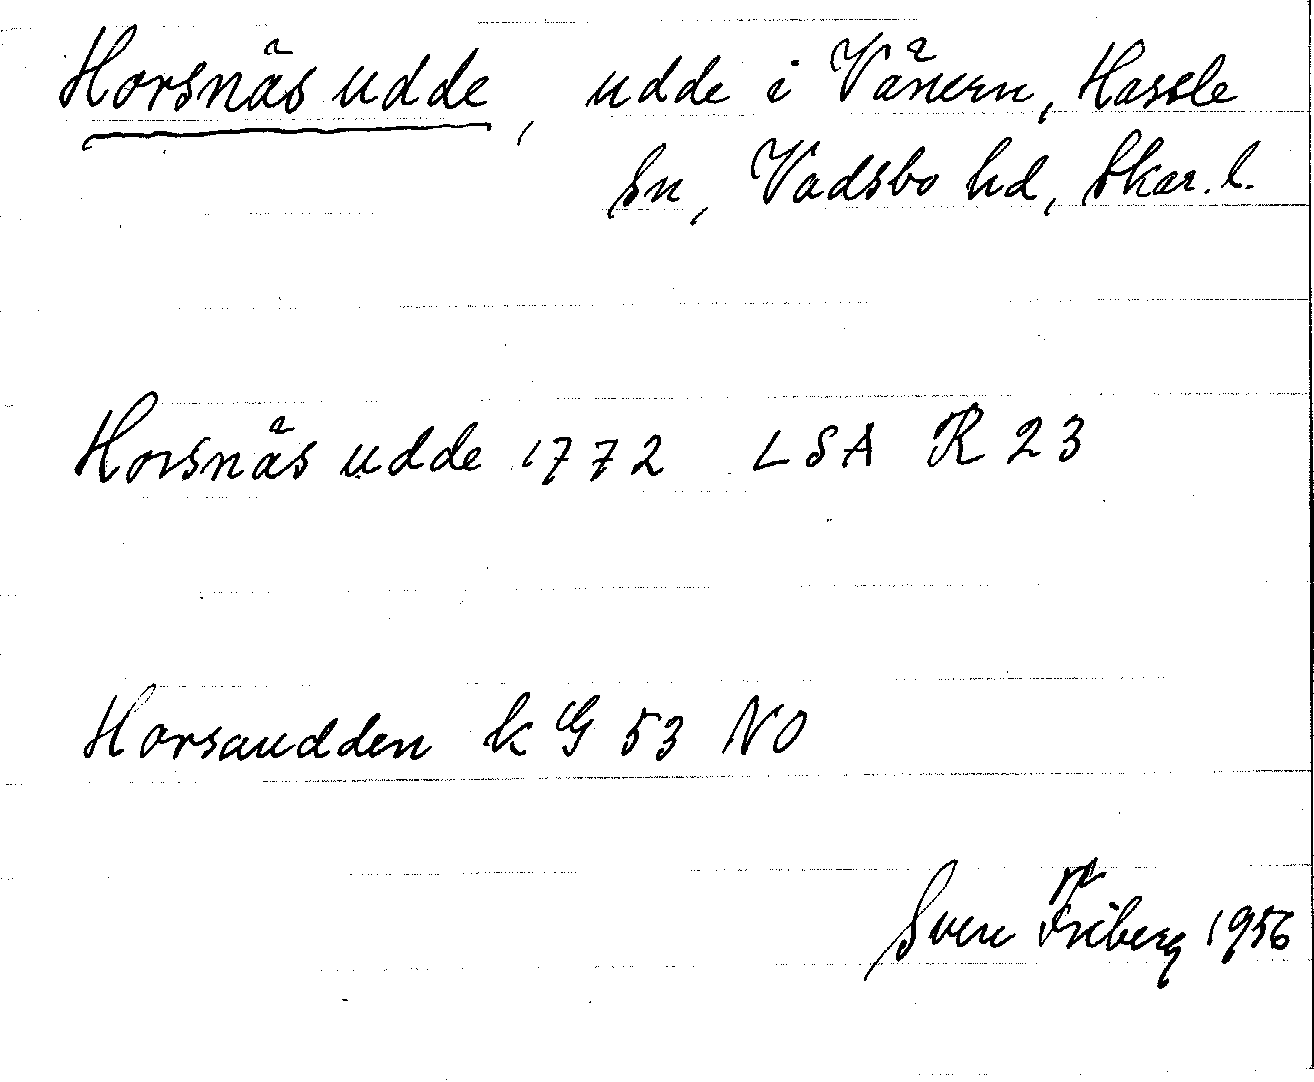 Horsnäs udde, udde i Vänern, Hassle
sn, Vadsbo hd, Skar. l.
Horsnäs udde 1772 LSA R 23
Horsaudden k G 53 NO
Sven Friberg 1956